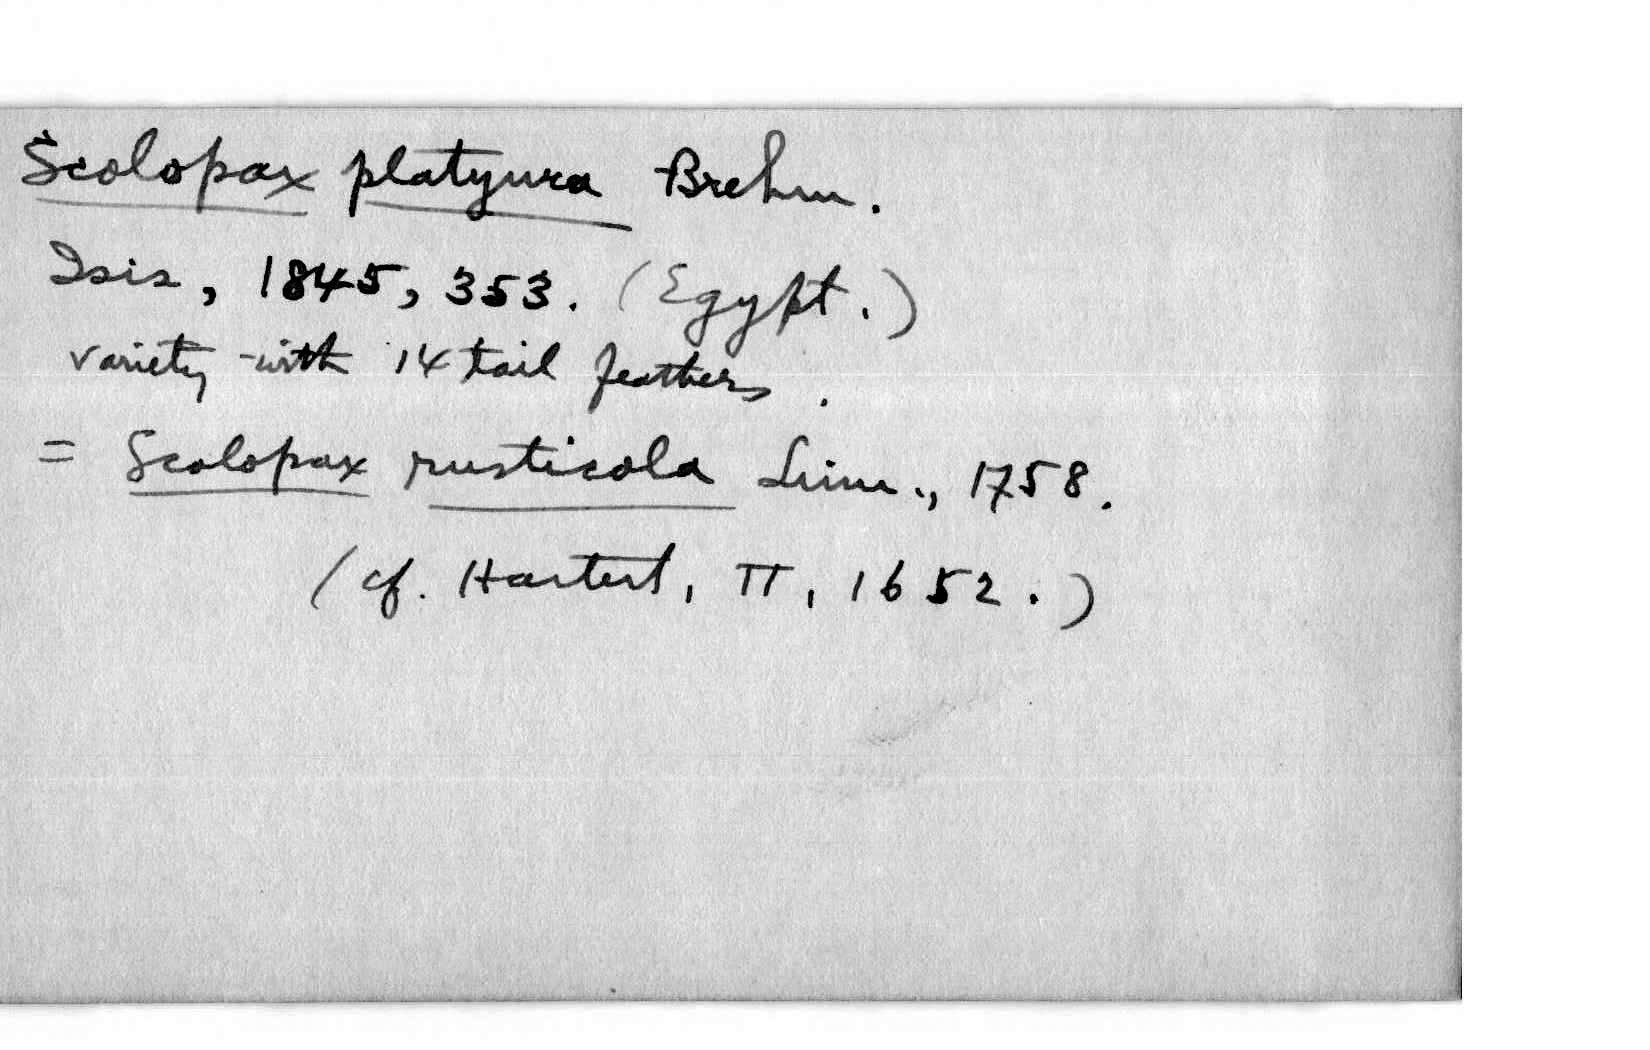 Scolopax platyura Brehm.
Isis, 1845, 353. (Egypt.)
variety with 14 tail feathers.
= Scolopax rusticola Linn., 1758.
(cf. Hartert, II, 1652.)